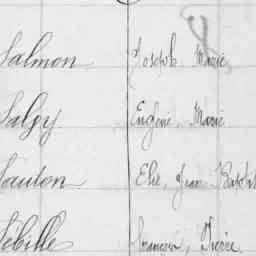 Salmon Joseph Marie
Salpy Eugène, Marie
Sauton Elie, Jean Baptist
Sébille François, Pierre